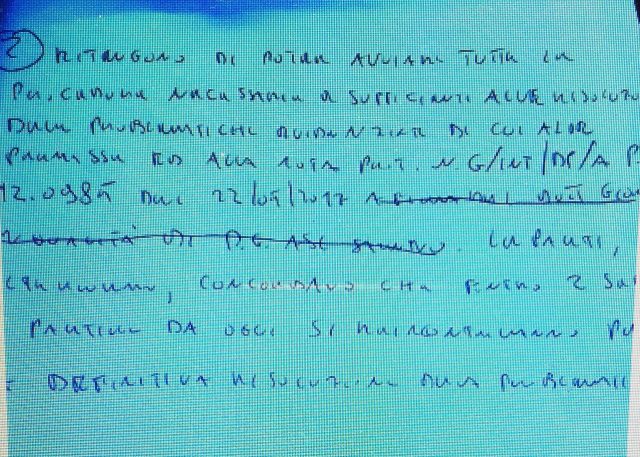 2) RITENGONO DI POTER AVVIARE TUTTA LA
PROCEDURA NECESSARIA E SUFFICIENTE ALLE RISOLUZIO
DELLE PROBLEMATICHE EVIDENZIATE DI CUI ALLE
PREMESSE ED ALLA NOTA PROT. N. G/INT/DP/A P
12.0985 DEL 22/05/2012
DI P.G. ASL . LE PARTI,
CONCORDANO CHE ENTRO 2
PARTIRE DA OGGI SI RINCONTRERANNO PE
DEFINITIVA RISOLUZIONE DELLE PROBLEMATIC